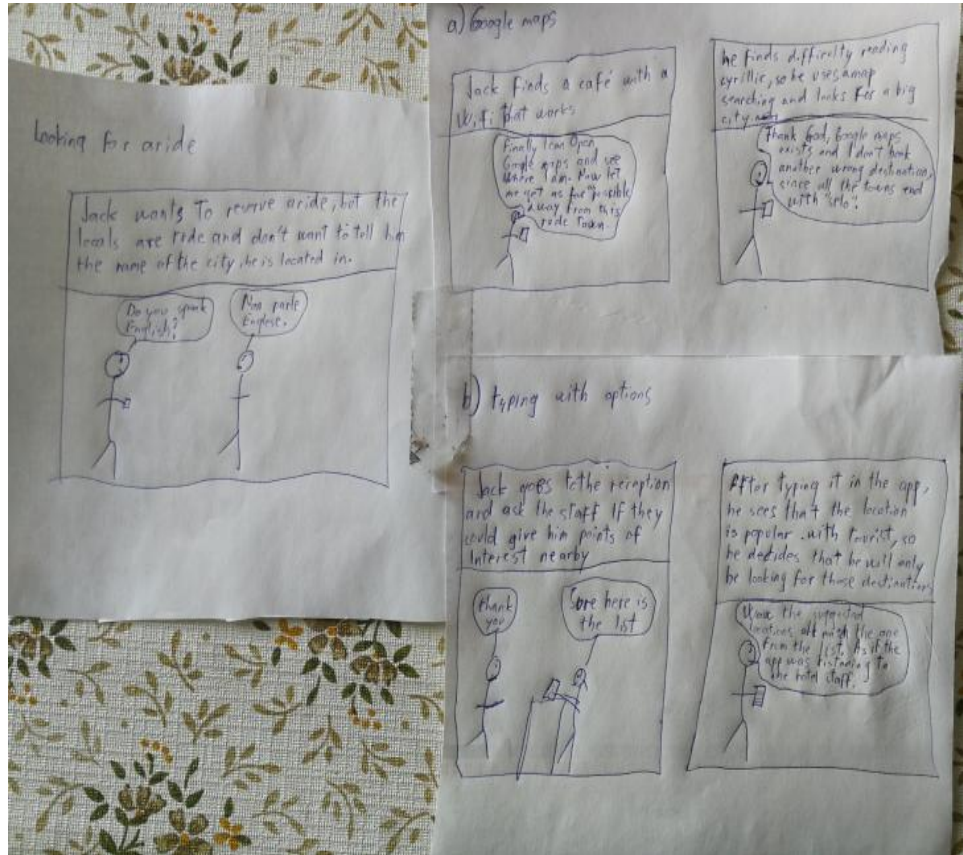 Looking for a ride
Jack wants to reserve a ride, but the
locals are rude and don't want to tell him
the name of the city, he is located in.
Do you speak
English?
Non parle
Englese.
a) Google maps
Jack finds a café with a
Wi.Fi that works
Finally I can Open
Google maps and see
where I am. Now let
me get as far possible
away from this
rude Town.
he finds difficulty reading
cyrillic, so he uses a map
searching and looks for a big
city
Thank God, Google maps
exists and I don't book
another wrong destination,
since all the towns end
with "selo".
b) typing with options
Jack goes to the reception
and ask the staff If they
could give him points of
Interest nearby
thank
you
Sure here is
the list
After typing it in the app,
he sees that the location
is popular with tourist, so
he decides that he will only
be looking for those destinations
the suggested
locations match the one
from the list. As if the
app was listening to
the hotel staff.